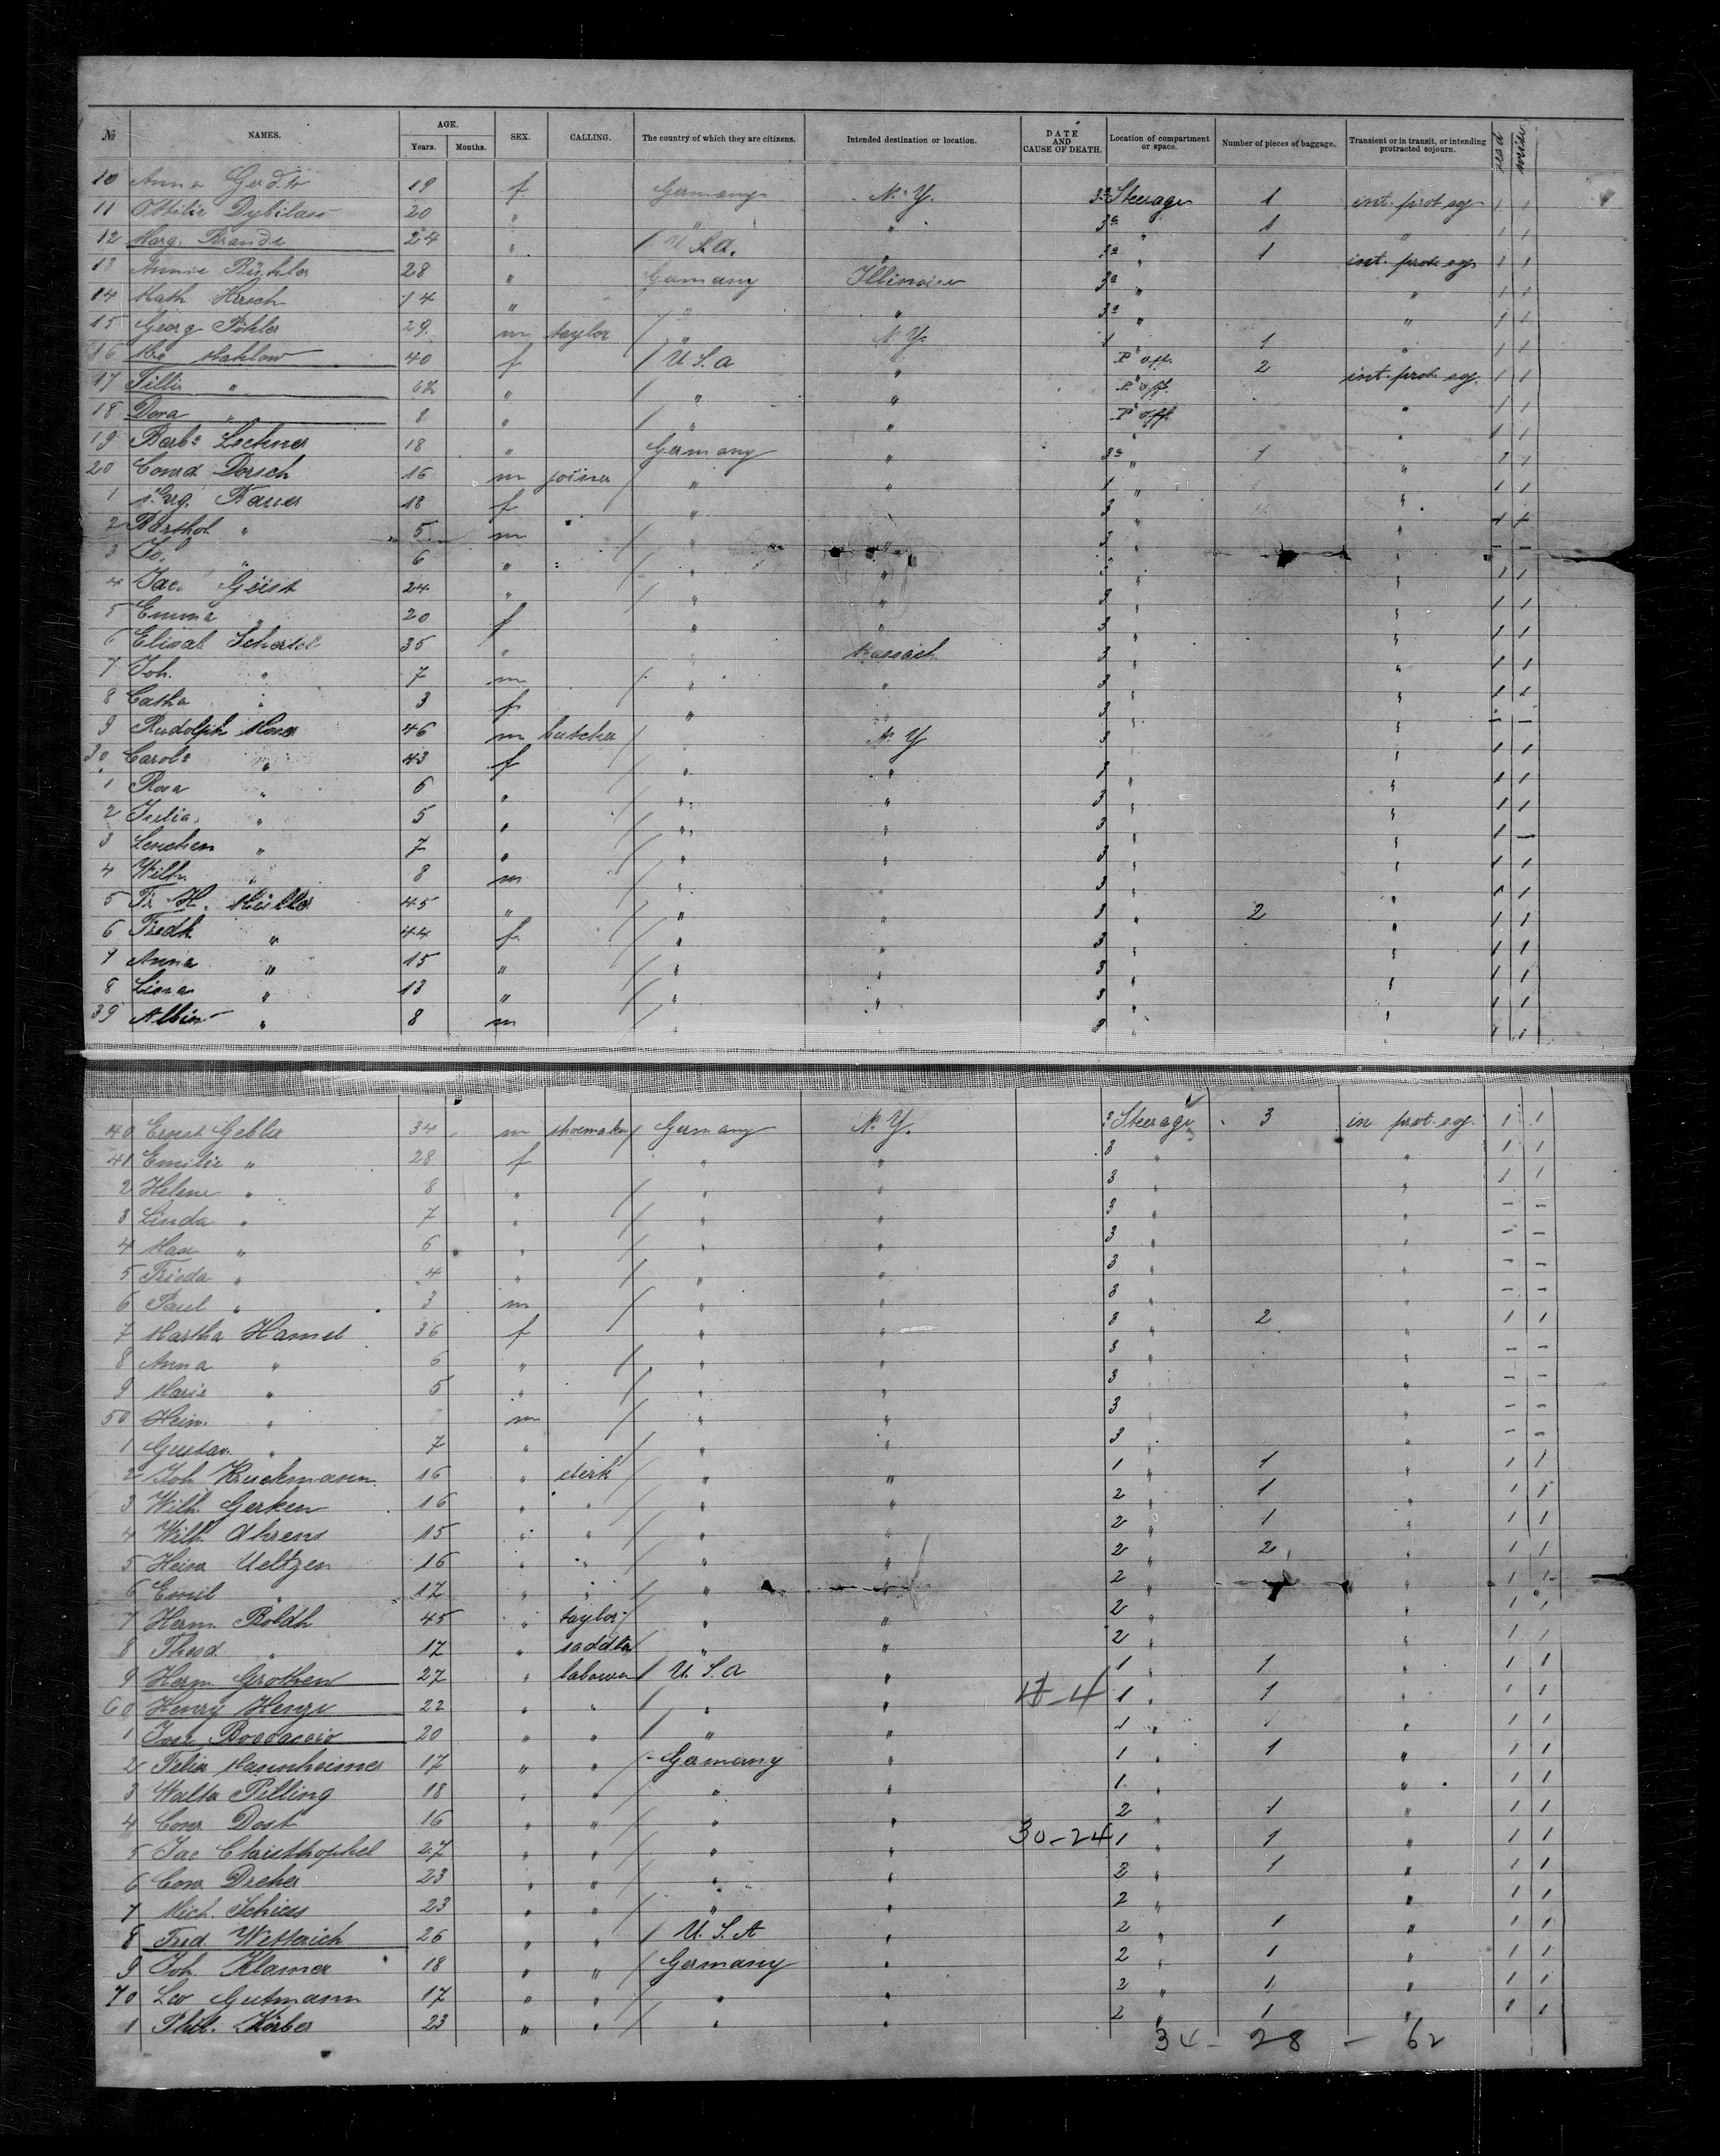 № NAMES. AGE. Years. Months. SEX. CALLING. The country of which they are citizens. Intended destination or location. DATE AND CAUSE OF DEATH. Location of compartment or space. Number of pieces of baggage. Transient or in transit, or intending protracted sojourn. read write
10 Anna 19 f Germany N. Y. 3a Steerage 1 int. prot soj 1 1
11 Ottilie 20 " " " 3a " 1 " 1 1
12 Marg. Brande 24 " / U. S. A. " 3a " 1 int. prot soj 1 1
13 Annie Bühler 28 " Germany Illinois 3a " " 1 1
14 Math Hirsch 14 " " " 3a " " 1 1
15 Georg 29 m taylor / " N. Y. 1 1 " 1 1
16 Mrs Mahlow 40 f / U. S. a " 2 int. prot soj. 1 1
17 Tillie " " / " " " 1 1
18 Dora " 8 " / " " " 1 1
19 Barba Lechner 18 " Germany " 3a " 1 " 1 1
20 Conrd Dorsch 16 m joiner / " " 1 " " 1 1
1 Bauer 18 f " 3 " " 1 1
2 Barthol " 5 m / " " 3 " " – –
3 Jo. " 6 " / " " " " 1 1
4 Jac. Geist 24 " / " " 3 " " 1 1
5 Emma " 20 f " " 3 " " 1 1
6 Elisab 35 " " Massach 3 " " 1 1
7 Joh. " 7 m / " " 3 " " 1 1
8 Catha " 3 f / " " 3 " " – –
9 Rudolph 46 m butcher / " N. Y 3 " " 1 1
30 Carola " 43 f / " " 3 " " 1 1
1 Rosa " 6 " / " " 3 " " 1 1
2 Julia " 5 " / " " 3 " " 1 –
3 Lenchen " 7 " / " " 3 " " 1 1
4 Wilh. " 8 m / " " 3 " " 1 1
5 Fr. H. Müller 45 " / " " 3 " 2 " 1 1
6 Fredk " 44 f / " " 3 " " 1 1
7 Anna " 15 " / " " 3 " " 1 1
8 " 13 " / " " 3 " " 1 1
39 Albin " 8 m / " 3 " " 1 1
40 Ernst Gebler 34 m shoemaker / Germany N. Y. 3 Steerage 3 in prot. soj. 1 1
41 Emilie " 28 f " " 3 " " 1 1
2 Helene " 8 " / " " 3 " " 1 1
3 Linda " 7 " / " " 3 " " – –
4 Max " 6 " / " " 3 " " – –
5 Frieda " 4 " / " " 3 " " – –
6 Paul " 3 m / " " 3 " " – –
7 Martha Hamel 36 f " " 3 " 2 " 1 1
8 Anna " 6 " / " " 3 " " – –
9 Marie " 5 " / " " 3 " " – –
50 Hein. " m / " " 3 " " – –
1 Gustav " 7 " / " " 3 " " – –
2 Joh Kruckmann 16 " clerk / " " 1 " 1 " 1 1
3 Wilh. Gerken 16 " " / " " 2 " 1 " 1 1
4 Wilh. Ahrens 15 " " / " " 2 " 1 " 1 1
5 Heinr Ueltzen 16 " " / " " 2 " 2 " 1 1
6 Emil " 17 " " / " " 2 " " 1 1
7 Herm. Boldh 45 " taylor / " " 2 " " 1 1
8 Theod. " 17 " saddler / " " 2 " " 1 1
9 Herm. Grothen 27 " labourer / U. S. A " 1 " 1 " 1 1
60 Henry 22 " " / " " 1 " 1 " 1 1
1 Boccaccio 20 " " / " " 1 " " 1 1
2 Felix Mannheimer 17 " " / Germany " 1 " 1 " 1 1
3 Walter Pilling 18 " " / " " 1 " " 1 1
4 Conr Dost 16 " " / " " 2 " 1 " 1 1
5 Jac Christhophel 27 " " / " " 30–24 1 " 1 " 1 1
6 Conr Dreher 23 " " / " " 2 " 1 " 1 1
7 Mich. Schiess 23 " " / " " 2 " " 1 1
8 Fred Wetterich 26 " " / U. S. A " 2 " 1 " 1 1
9 Joh. Klamer 18 " " / Germany " 2 " 1 " 1 1
70 Leo Gutmann 17 " " / " " 2 " 1 " 1 1
1 Körber 23 " " / " " 2 " 1 " 1 1
34 – 28 – 62